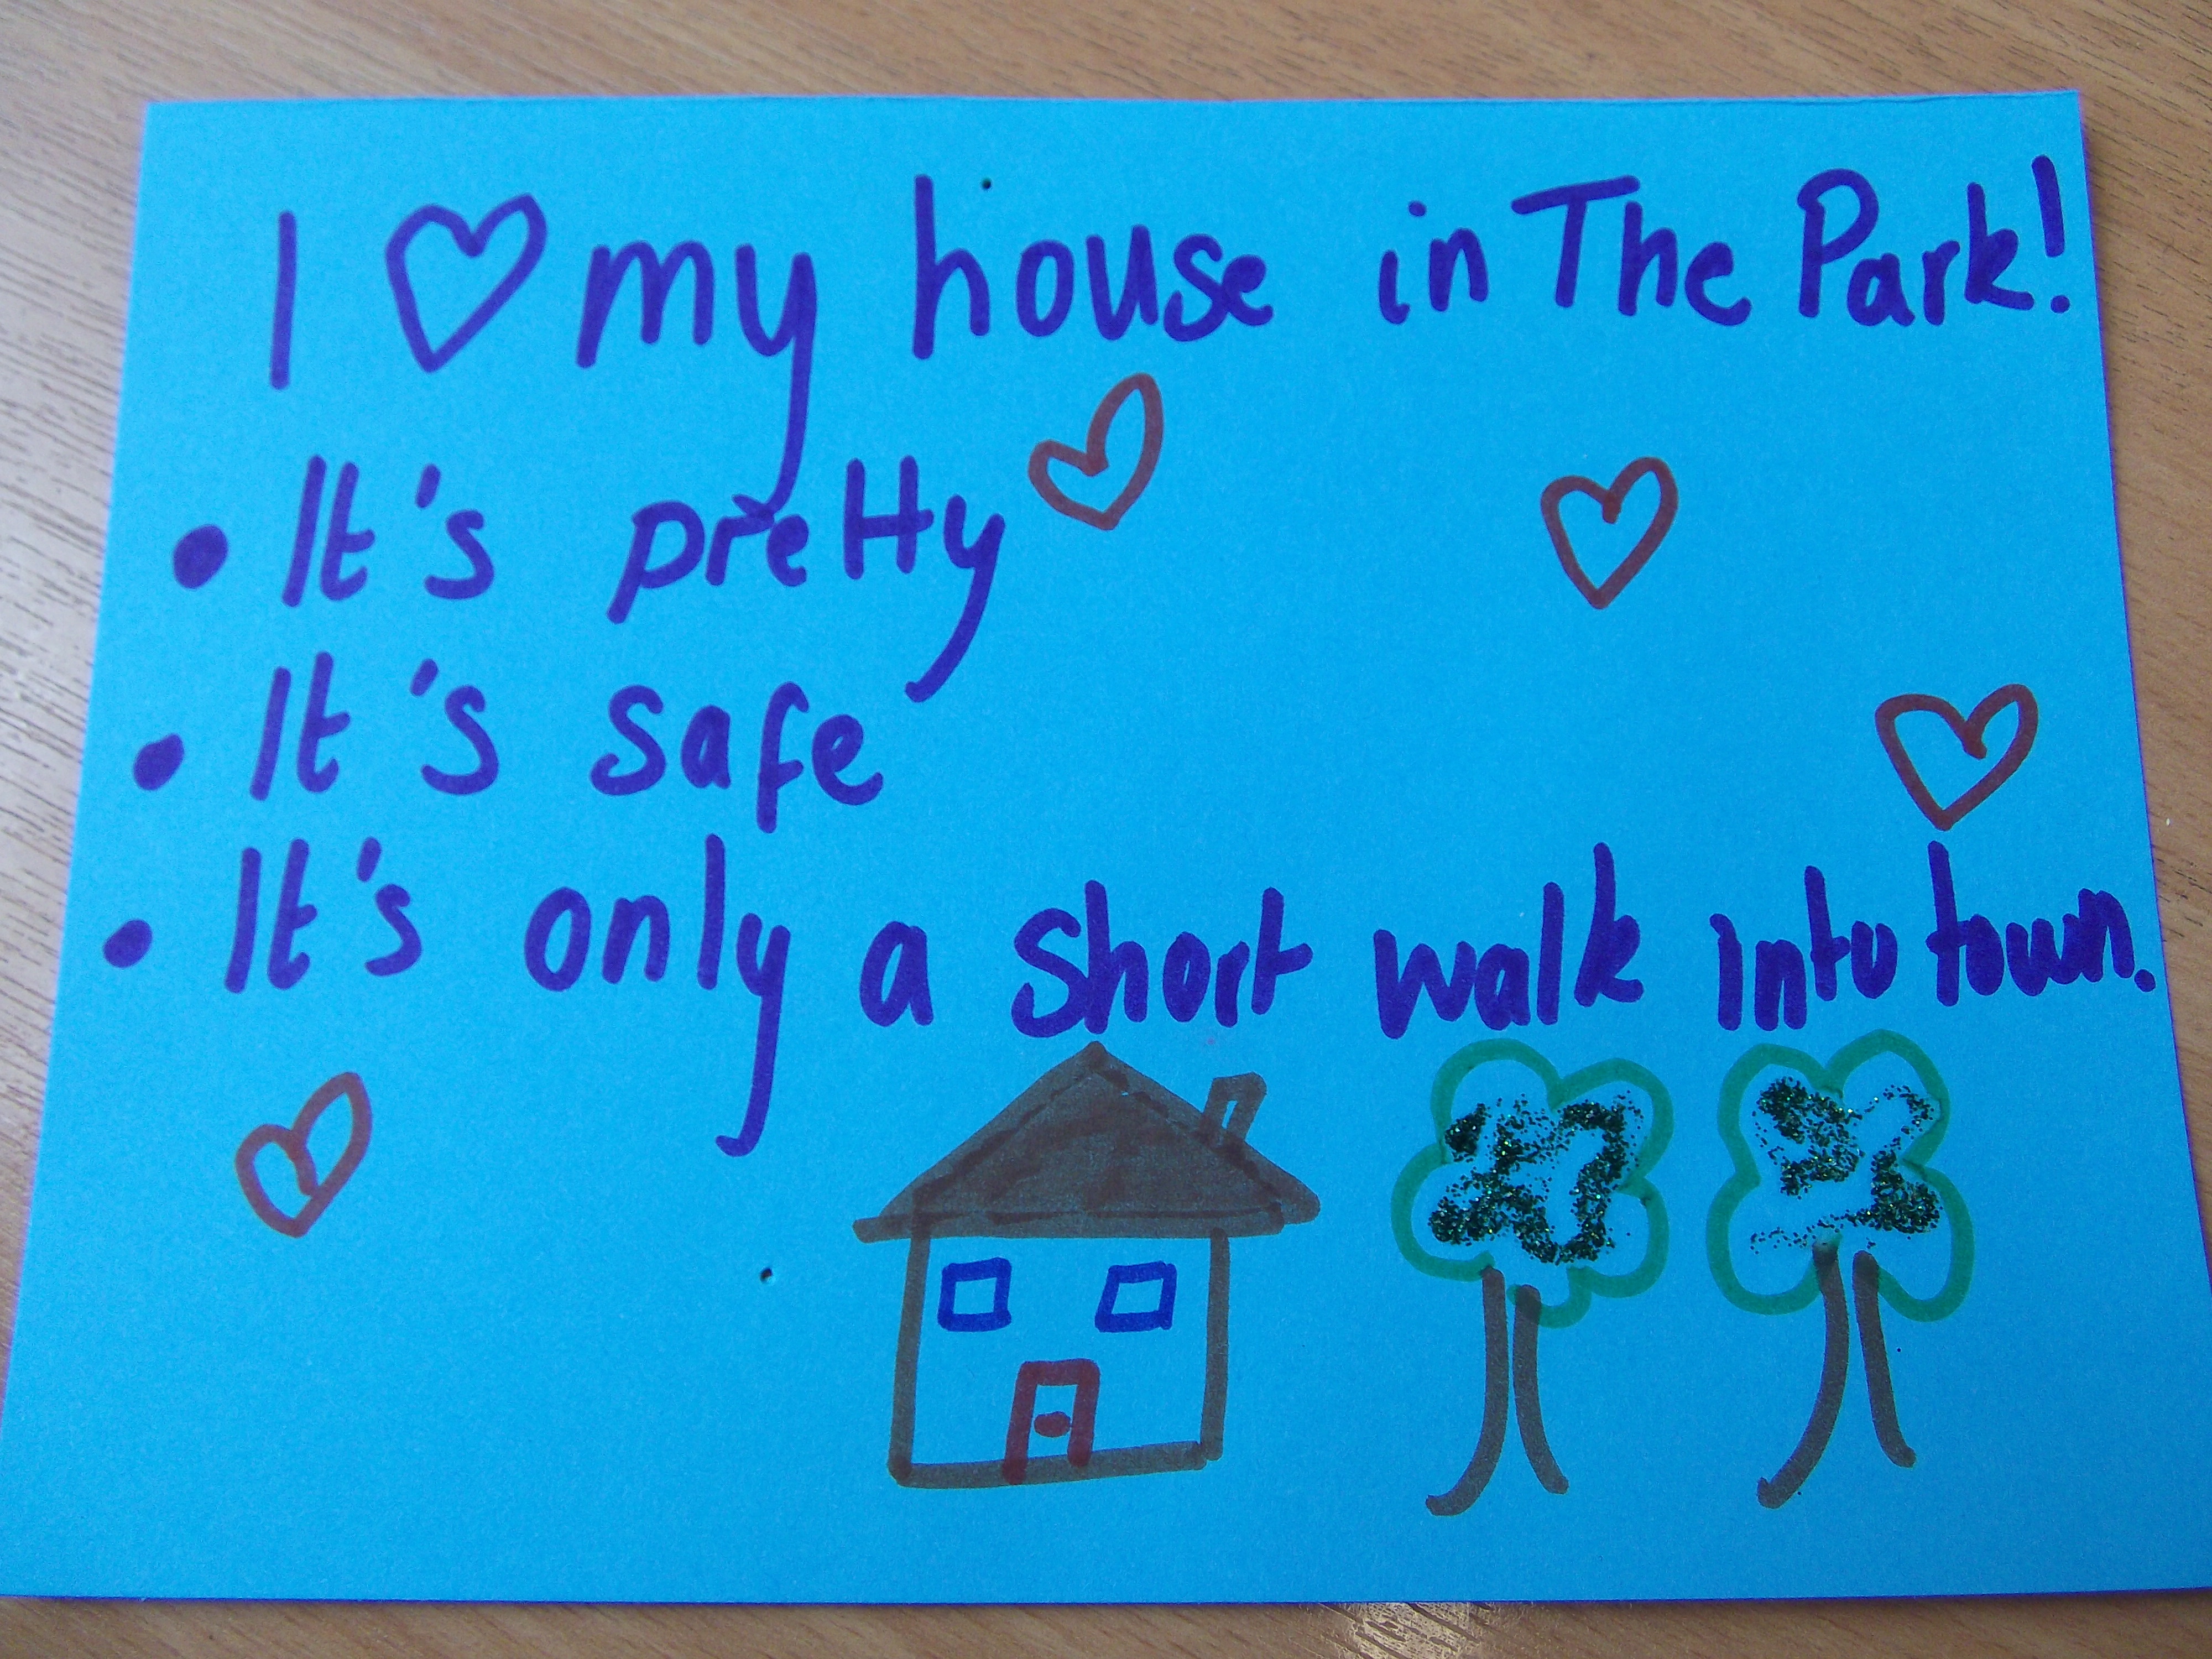 I ♡ my house in The Park!
• It's pretty
• It's safe
• It's only a short walk into town.